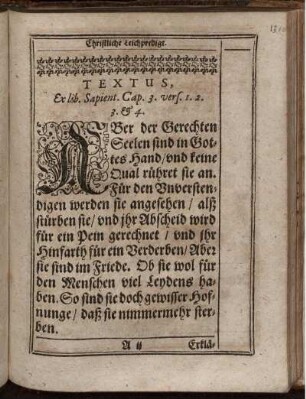 Christliche Leichpredigt.
TEXTUS,
Ex lib. Sapient. Cap. 3. vers. 1. 2.
3. & 4.
ABer der Gerechten
Seelen sind in Got-
tes Hand/ vnd keine
Qual rühret sie an.
Für den Vnversten-
digen werden sie angesehen / alß
stürben sie/ vnd jhr Abscheid wird
für ein Pein gerechnet / vnd jhr
Hinfarth für ein Verderben/ Aber
sie sind im Friede. Ob sie wol für
den Menschen viel Leydens ha-
ben. So sind sie doch gewisser Hof-
nunge / daß sie nimmermehr ster-
ben.
A ij Erklä-